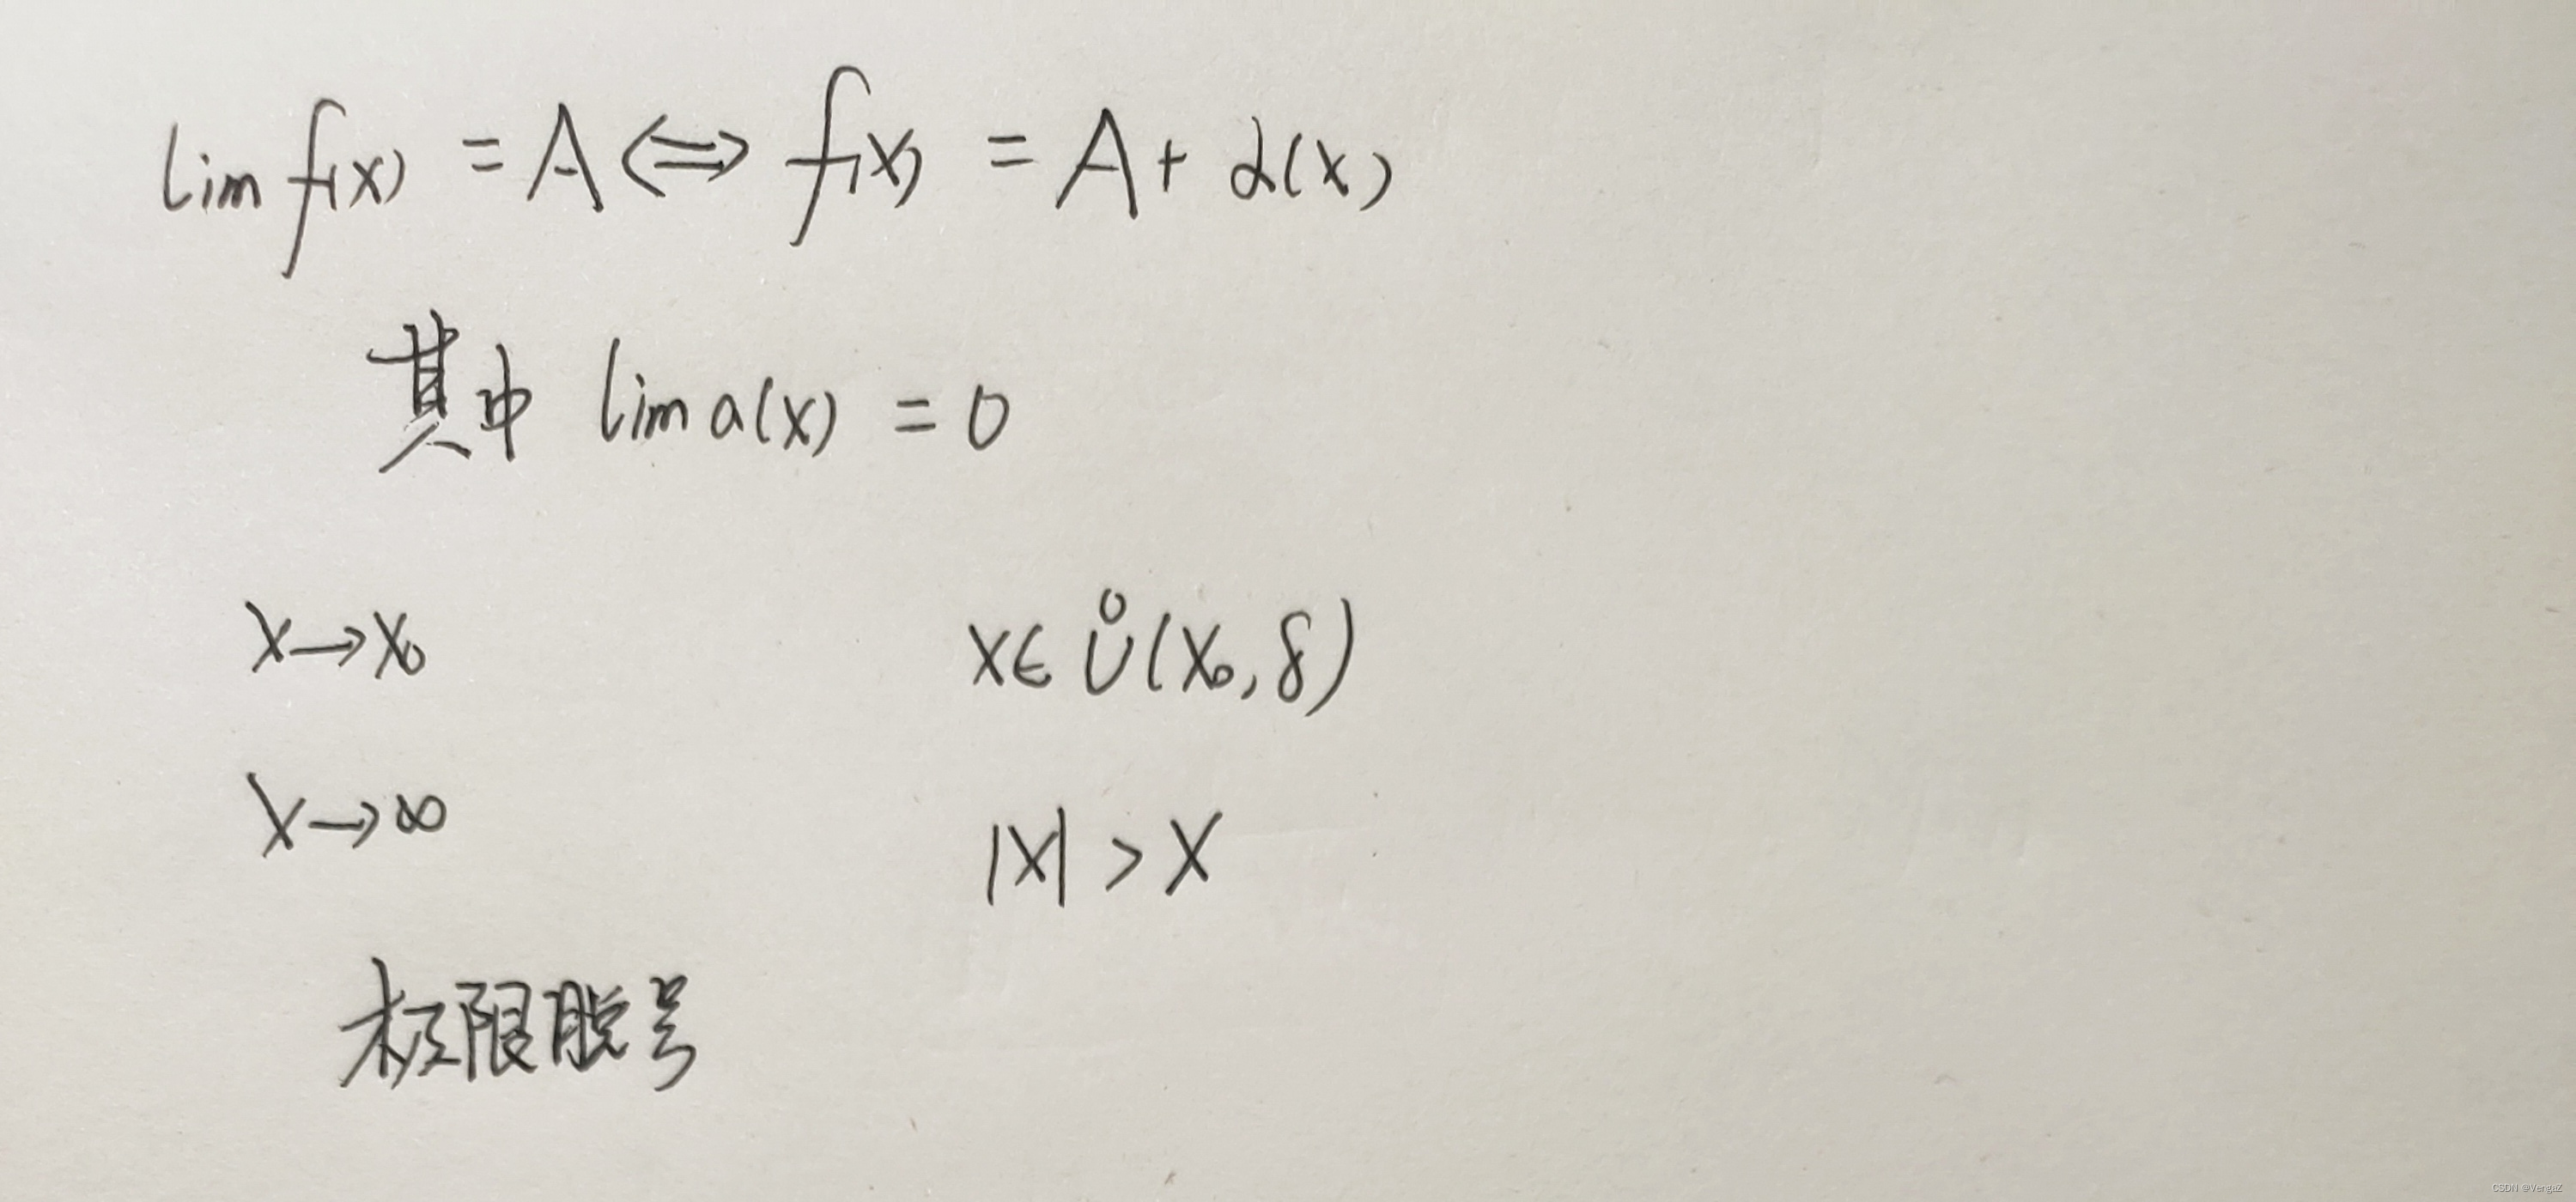 lim f(x) = A ⟺ f(x) = A + α(x)
其中 lim α(x) = 0
x→x₀ x∈Ů(x₀,δ)
x→∞ |x| > X
极限脱号
CSDN @VengaZ